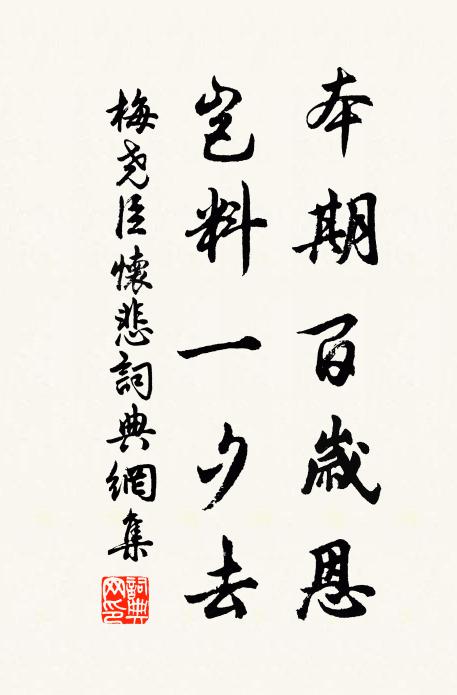 本期百歲恩
豈料一夕去
梅堯臣懷悲詞典網集
詞典網印